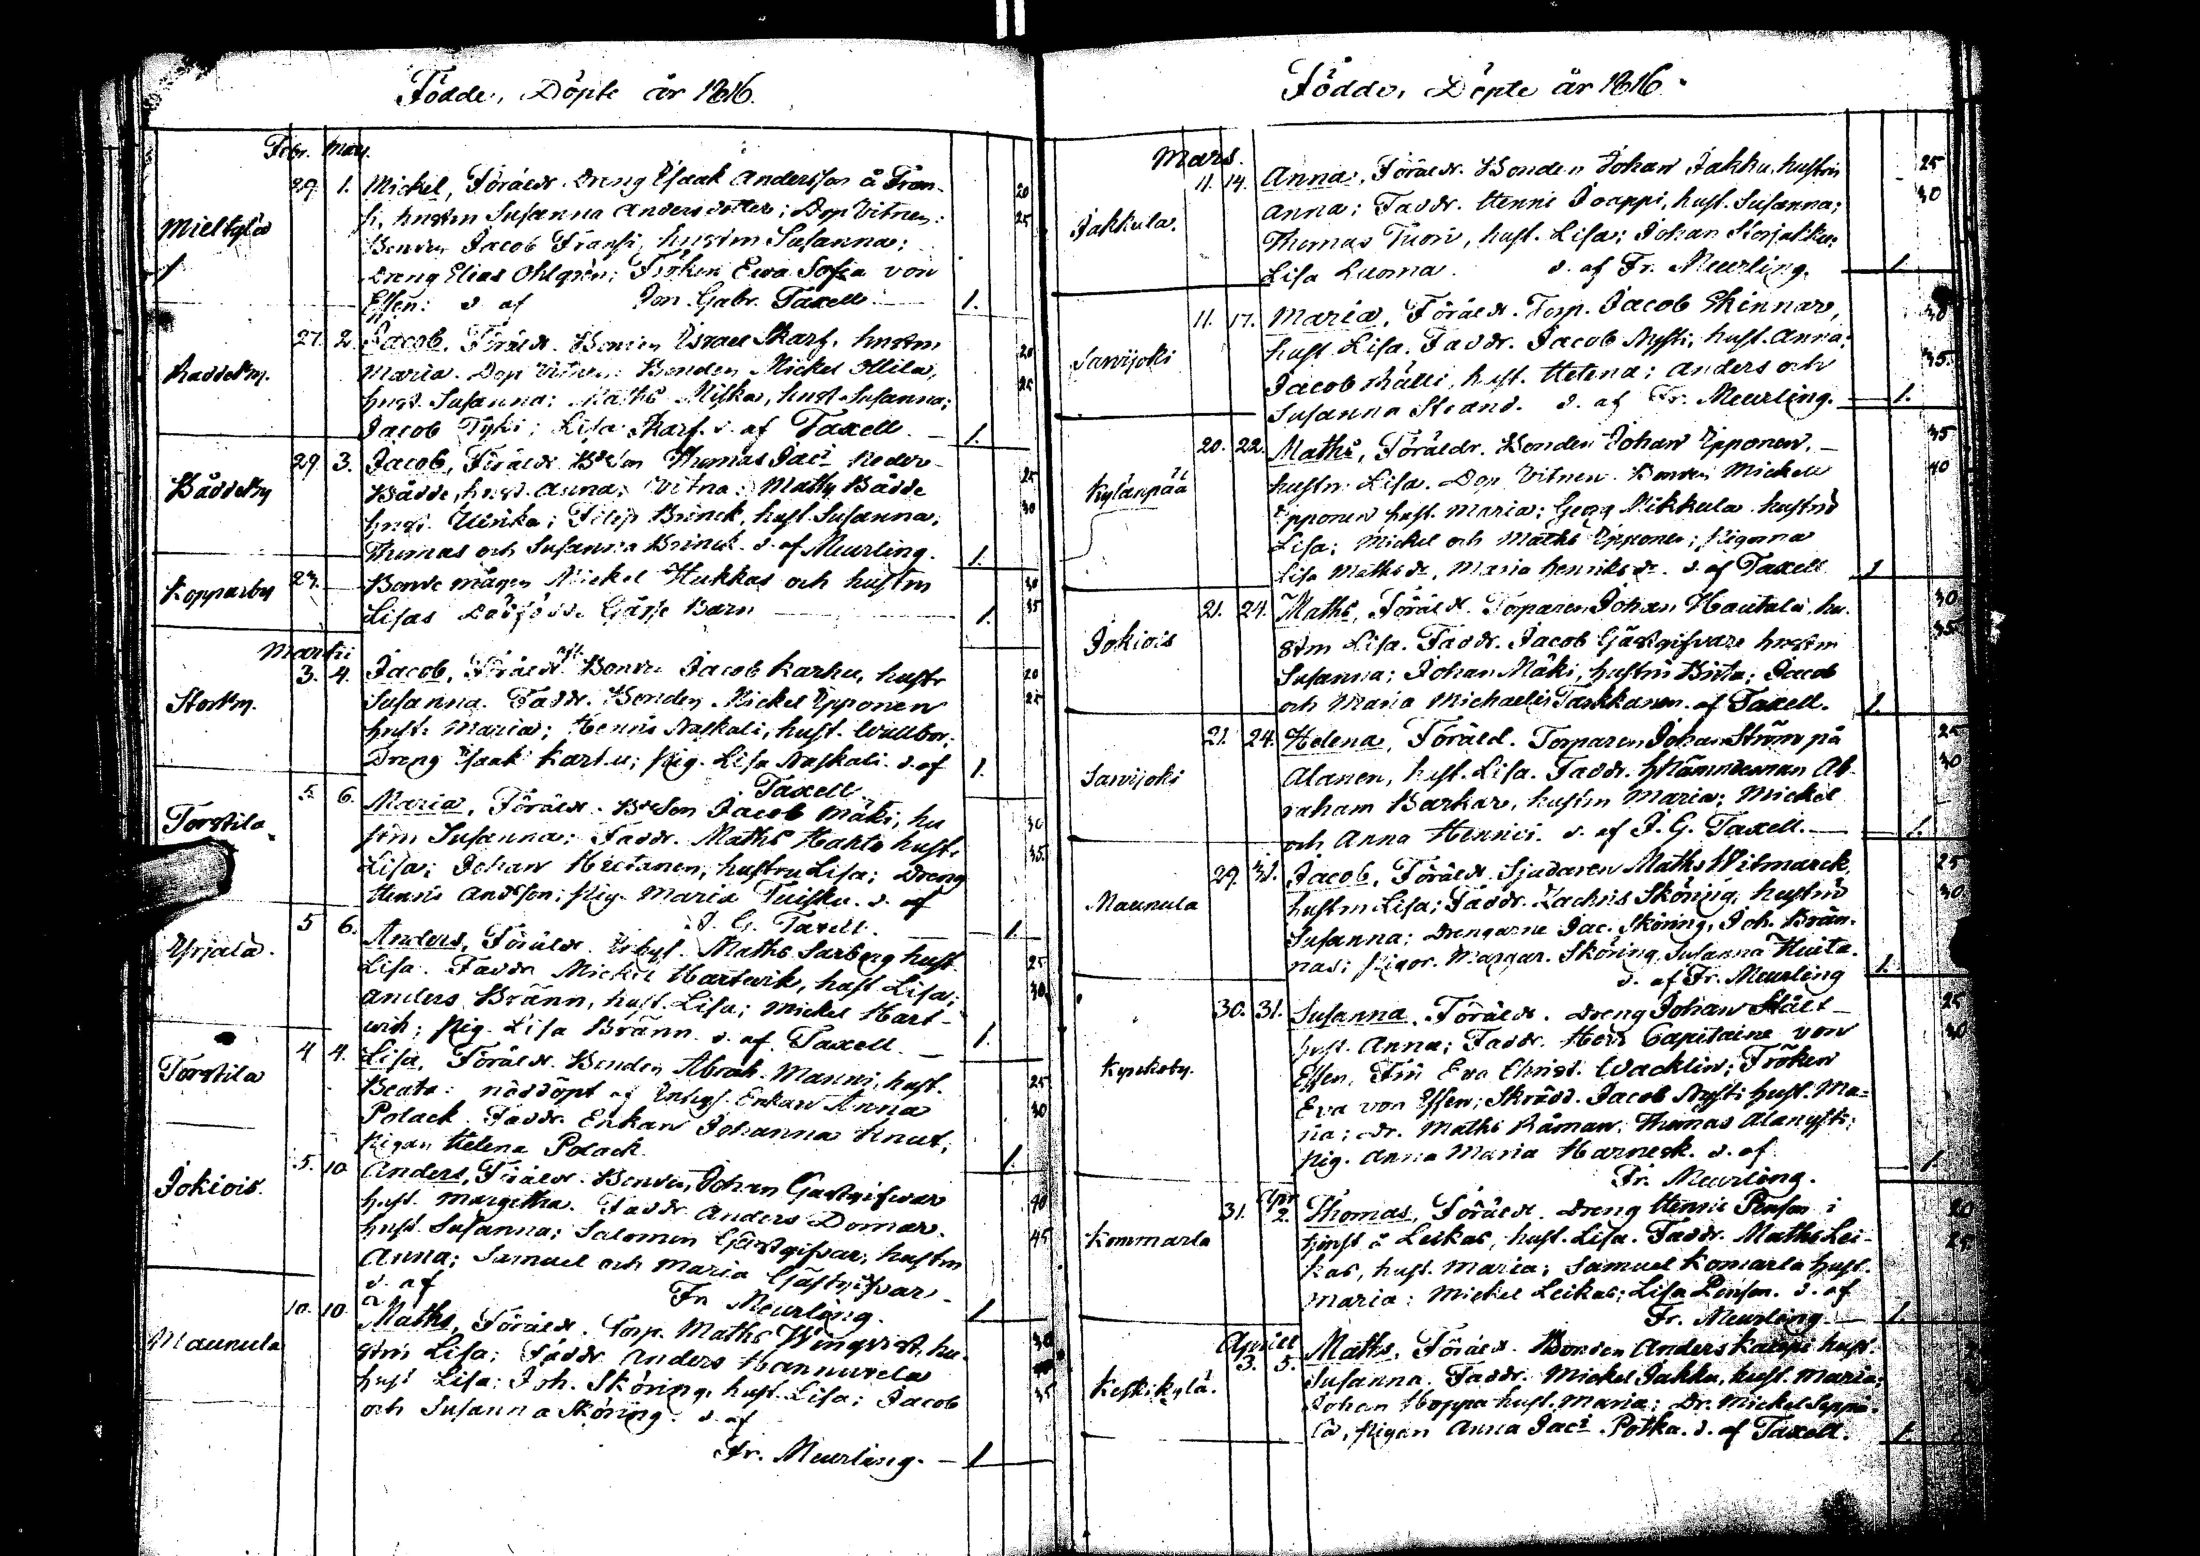 Födde, Döpte år 1816.
Febr. Mars.
Mieltylä
29. 1. Mickel, Föräldr. Dreng Isaak Andersson å Fran- 20
si, hustrn Susanna Andersdotter; Dop Vitnen: 25
Bonden Jacob Fransi, hustrn Susanna;
Dreng Elias Ohlgrén; Fröken Ewa Sofia von
Essen: d. af Jon. Gabr. Taxell. 1.
27. 2. Jacob, Föräldr. Bonden Israel Skarf, hustrn 20
Maria. Dop Vitnen: Bonden Mickel Ollila, 25
hust. Susanna; Maths Miska, hust. Susanna;
Jacob Tyks; Lisa Skarf. d. af Taxell. 1.
Båddeby
29. 3. Jacob, Föräldr. Thomas Jacs 25
Bådde, hust. Anna; Vitne: Maths Bådde 30
hust. Ulrika; Filip Brinck, hust. Susanna;
Thomas och Susanna Brinck. d. af Meurling. 1.
Kopparby
27. Bonde mågen Mickel Hukkas och hustrn 30
Lisas Dödfödde Gåsse Barn 1. 35
Martii
Storby.
3. 4. Jacob, Föräldr. Bonden Jacob Karhu, hustr 20
Susanna. Faddr. Bonden Mickel Epponen 25
hust. Maria; Hennis Naskali, hust. Wallbor;
Dreng Isaak Karhu; Pig. Lisa Naskali. d. af 1.
Taxell
Torstila
5. 6. Maria, Föräldr. BdeSon Jacob Mäki, hu 30
strn Susanna; Faddr. Maths Hahto hust. 35.
Lisa; Johan Huitanen, hustru Lisa; Dreng
Hennis Andsson; Pig. Maria Tuisku. d. af
J. G. Taxell. 1.
Yrjälä.
5 6. Anders, Föräldr. Inhys. Maths Sarberg hust 25
Lisa. Faddr. Mickel Hartwik, hust Lisa; 30
Anders Bränn, hust. Lisa; Mickel Hart-
wik; Pig. Lisa Bränn. d. af Taxell. 1.
Torstila
4 4. Lisa, Föräldr. Bonden Abrah. Manni, hust. 25
Beata: nöddöpt af Inhys. Enkan Anna 30
Polack. Faddr. Enkan Johanna Knut;
Pigan Helena Polack 1.
Jokiois.
5. 10 Anders, Föräldr. Bonden Johan Gästgifvar 40
hust. Margetha. Faddr. Anders Domar. 45
hust. Susanna; Salomon Gästgifvar, hustrn
Anna; Samuel och Maria Gästgifvar.
d. af Fr. Meurling. 1
Maunula
10. 10. Maths, Föräldr. Torp. Maths Wingvist, hu- 30
strn Lisa; Faddr. Anders Hannuvela
hust Lisa; Joh. Sköring, hust. Lisa; Jacob 35
och Susanna Sköring. d. af
Fr. Meurling. 1
Födde, Döpte år 1816.
Mars.
Jakkula.
11. 14. Anna, Föräldr. Bonden Johan Jakku, hustrn 25
Anna; Faddr. Hennis Joappi, hust. Susanna; 30
Thomas Tuori, hust. Lisa; Johan
Lisa Luoma. d. af Fr. Meurling. 1.
Sawijoki
11. 17. Maria, Föräldr. Torp. Jacob Skinnar, 30
hust. Lisa. Faddr. Jacob Nysti, hust. Anna; 35.
Jacob Bälli, hust. Helena; Anders och
Susanna Strand. d. af Fr. Meurling. 1.
Kylänpää
20. 22. Maths, Föräldr. Bonden Johan Epponen, 35
hustrn Lisa. Dop Vitnen. Bonden Mickel 40
Epponen hust. Maria; Georg Mikkula hustru
Lisa; Mickel och Maths Epponen; Pigorna
Lisa Mathsdr, Maria Henriksdr. d. af Taxell 1
Jokiois
21. 24. Maths, Föräldr. Torparen Johan Hautala, hu- 30
strn Lisa. Faddr. Jacob Gästgifvare hustrn 35
Susanna; Johan Mäki, hustru Brita; Jacob
och Maria Michaelis Tarkkanen. af Taxell. 1.
Sawijoki
21. 24. Helena, Föräld. Torparen Johan Ström på 25
Alanen, hust. Lisa. Faddr. HNämndeman Ab- 30
raham Barkar, hustrn Maria; Mickel
och Anna Hennis. d. af J. G. Taxell. 1.
Maunula
29. 31. Jacob, Föräldr. Sjudaren Maths Witmarck, 25
hustrn Lisa; Faddr. Zachris Sköring, hustru 30
Susanna; Drengarne Jac. Sköring, Joh. Brän-
nas; Pigor. Margar. Sköring, Susanna Huita. 1.
d. af Fr. Meurling
Kyrckoby.
30. 31. Susanna, Föräldr. Dreng Johan Stält 25
hust. Anna; Faddr. Herr Capitaine von 30
Essen, Fru Eva Christ. Wacklin; Fröken
Eva von Essen; Skrädd. Jacob Nysti hust. Ma-
ria; Dr. Maths Råman, Thomas Alanysti;
Pig. Anna Maria Harnesk. d. af 1.
Fr. Meurling.
Kommarla
31. Apr 2. Thomas, Föräldr. Dreng Hennis Penson i 20
tjenst å Leikas, hust. Lisa. Faddr. Maths Lei- 25
kas, hust. Maria; Samuel Komarla hust.
Maria; Mickel Leikas; Lisa Penson. d. af
Fr. Meurling 1.
Aprill
Keskikylä.
3. 5. Maths, Föräldr. Bonden Anders Kamppi hust.
Susanna. Faddr. Mickel Jakku, hust. Maria;
Johan Hoppa hust. Maria; Dr. Mickel Seppä-
lä, Pigan Anna Jacs. Potka. d. af Taxell. 1.